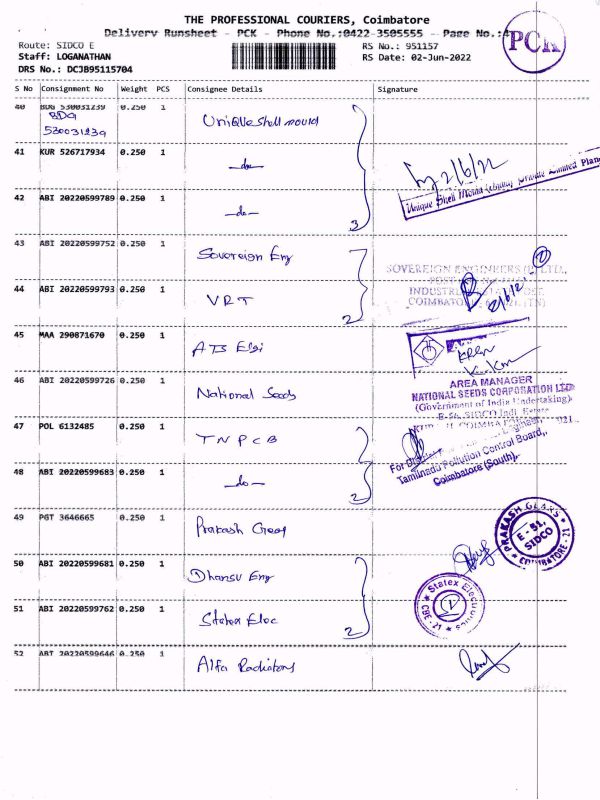 THE PROFESSIONAL COURIERS, Coimbatore
Delivery Runsheet - PCK - Phone No.:0422-3505555 -- Page No.:4
PCK
Route: SIDCO E
RS No.: 951157
Staff: LOGANATHAN
RS Date: 02-Jun-2022
DRS No.: DCJB95115704
S No Consignment No Weight PCS Consignee Details Signature
40 BDG 530031239 0.250 1 Unique shell mould
BDG
530031239
41 KUR 526717934 0.250 1 -do-
2/6/22
Unique Shell Mould (India) Private Limited
42 ABI 20220599789 0.250 1 -do-
3
43 ABI 20220599752 0.250 1 Sovereign Eng
SOVEREIGN ENGINEERS (P) LTD.,
44 ABI 20220599793 0.250 1 VRT
2
45 MAA 290871670 0.250 1 ATS Elgi
46 ABI 20220599726 0.250 1 National Seeds
AREA MANAGER
NATIONAL SEEDS CORPORATION LTD
(Government of India Undertaking)
E-56, SIDCO Indl. Estate
47 POL 6132485 0.250 1 TNPCB
Tamilnadu Pollution Control Board,
Coimbatore (South).
48 ABI 20220599683 0.250 1 -do-
2
49 PGT 3646665 0.250 1 Prakash Gear
PRAKASH GEARS
E - 51,
SIDCO
COIMBATORE - 21
50 ABI 20220599681 0.250 1 Dhansu Eng
51 ABI 20220599762 0.250 1 Statex Elec
2
Statex Electronics
CBE - 21
52 ABI 20220599646 0.250 1 Alfa Radiators